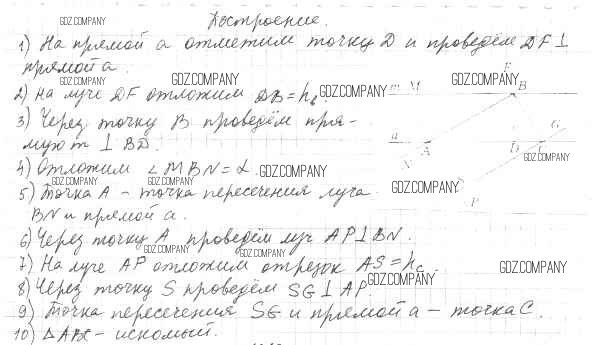 GDZ.COMPANY
Построение.
1) На прямой a отметим точку D и проведём DF ⊥
прямой a.
GDZ.COMPANY GDZ.COMPANY GDZ.COMPANY
F
2) на луче DF отложим DB = h
GDZ.COMPANY
m M B
3) Через точку B проведём пря-
мую m ⊥ BD.
a A D C G
N
4) Отложим ∠MBN = α. GDZ.COMPANY
GDZ.COMPANY
GDZ.COMPANY GDZ.COMPANY GDZ.COMPANY
5) Точка A – точка пересечения луча
BN и прямой a.
P
6) Через точку A проведём луч AP ⊥ BN.
GDZ.COMPANY GDZ.COMPANY
7) На луче AP отложим отрезок AS = hc.
GDZ.COMPANY GDZ.COMPANY
8) Через точку S проведём SG ⊥ AP.
9) Точка пересечения SG и прямой a – точка C.
10) △ABC – искомый.